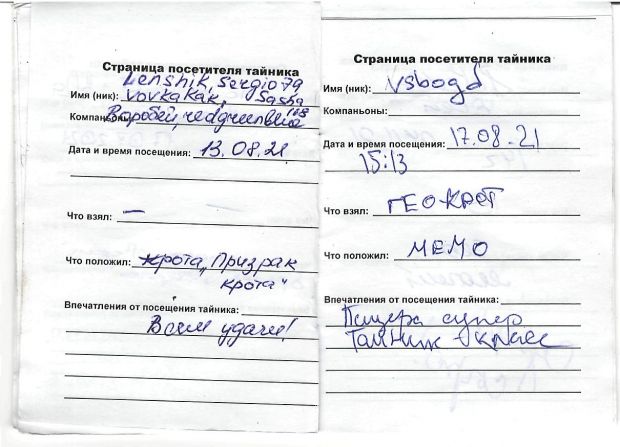 Страница посетителя тайника
Lenshik, Sergio79
Имя (ник): vovkakak, Sasha
168
Компаньоны: Воробей, redgreenblue
Дата и время посещения: 13.08.21
Что взял: —
Что положил: крота, „Призрак
крота“
Впечатления от посещения тайника:
Всем удачи!
Страница посетителя тайника
Имя (ник): vsbogd
Компаньоны:
Дата и время посещения: 17.08.21
15:13
Что взял: ГЕОКРОТ
Что положил: МЕМО
Впечатления от посещения тайника:
Пещера супер
Тайник - класс